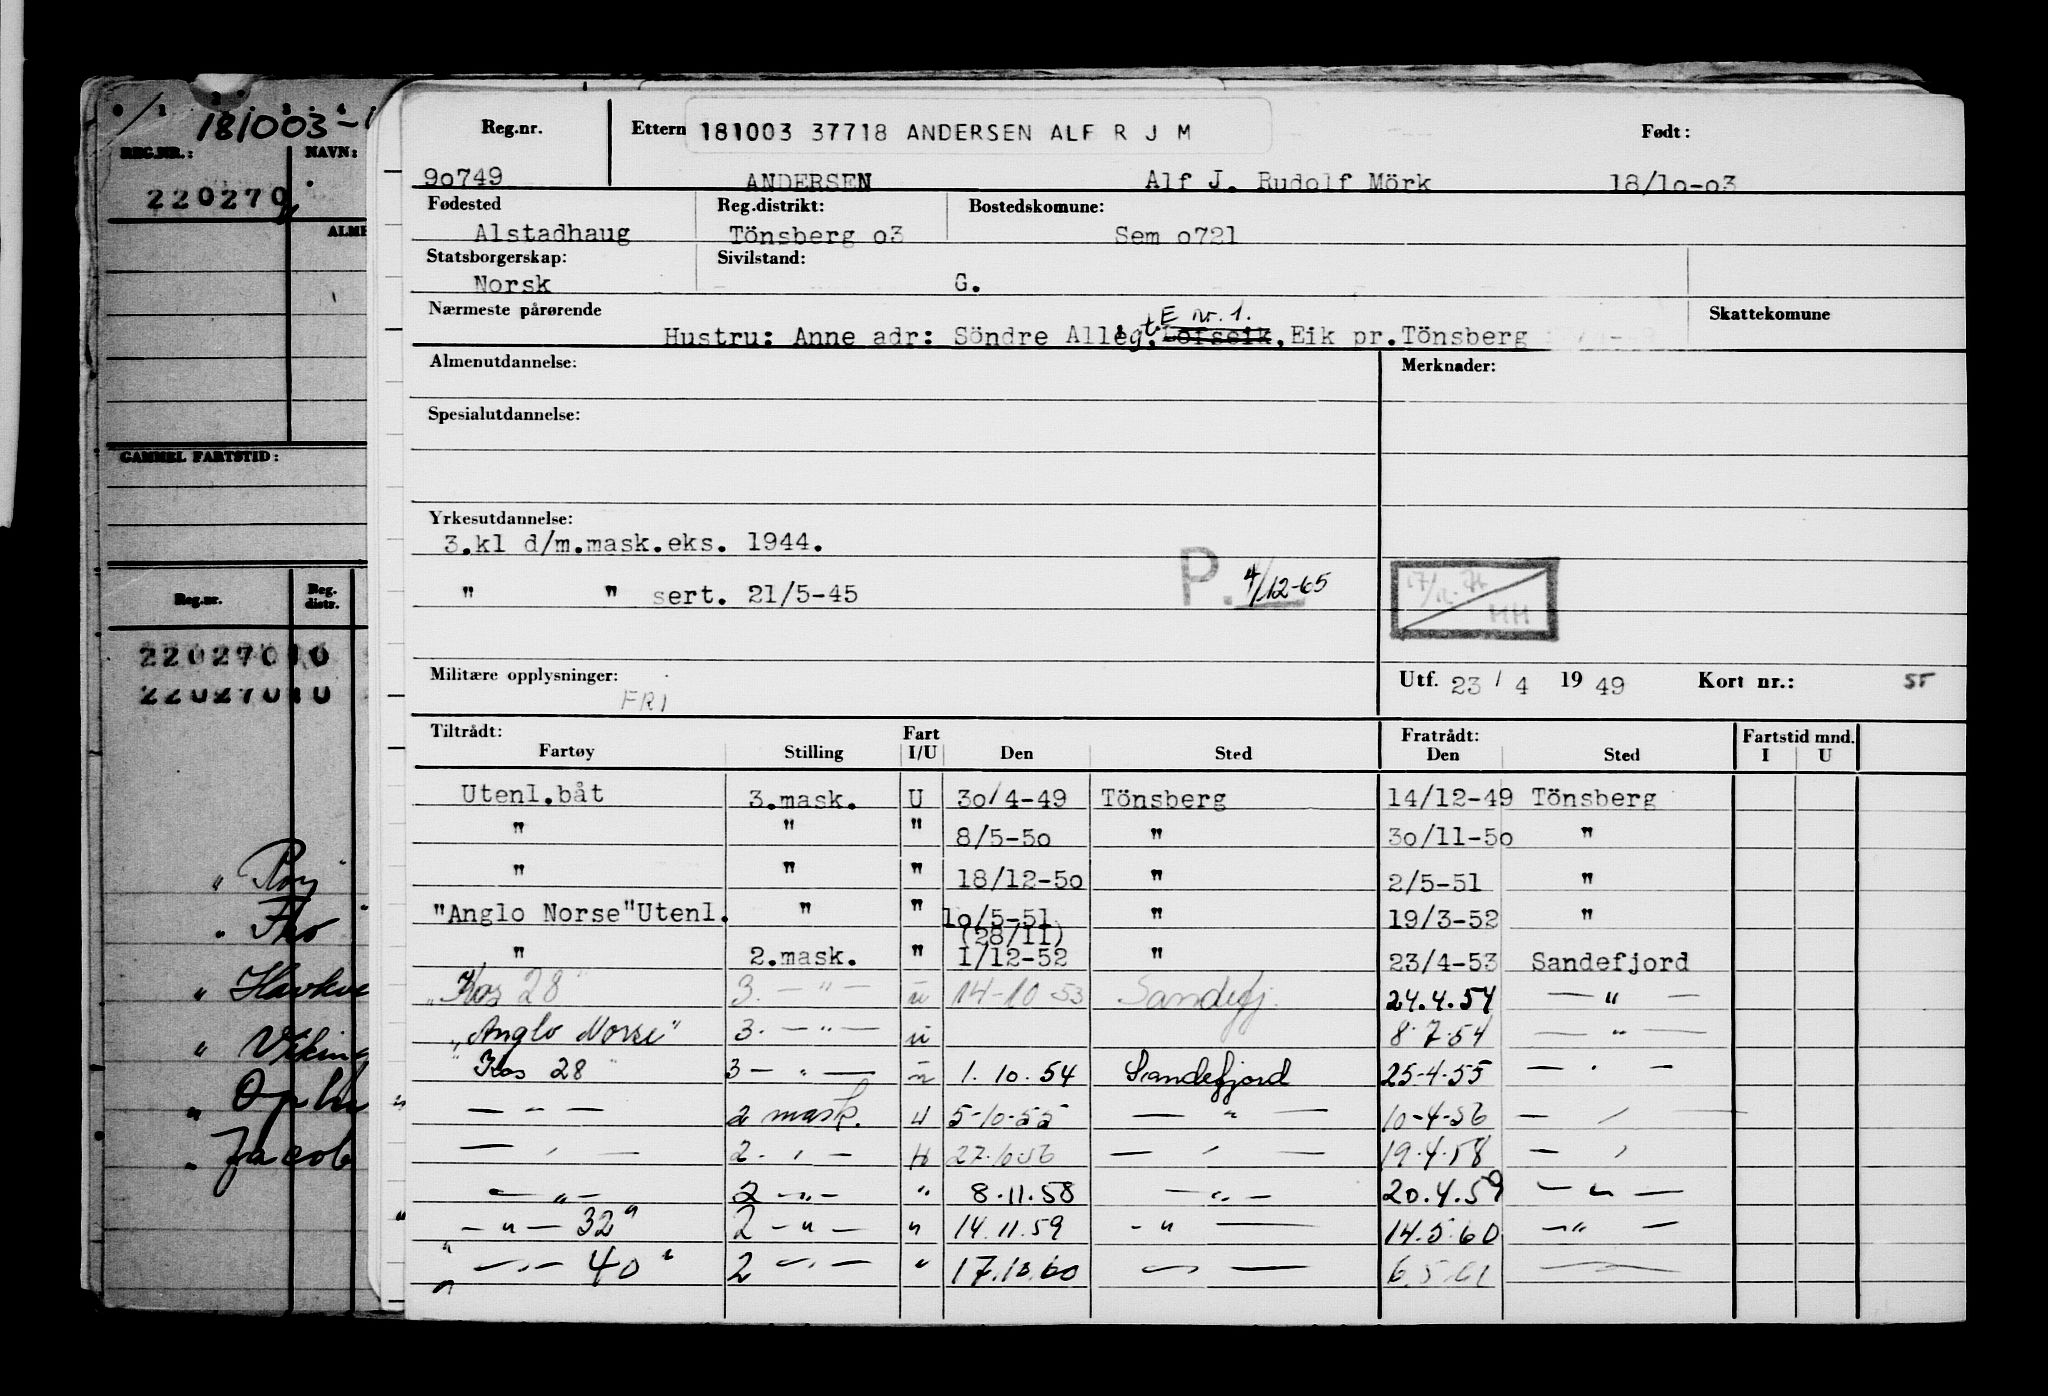 181003-1
REG.NR.: NAVN:
220270
ALME
GAMMEL FARTSTID:
Reg.nr. Reg. distr.
22027010
22027010
" Roy
" Tho
" Havkve
" Viking
" Ophu
" Jacob
Reg.nr. Ettern 181003 37718 ANDERSEN ALF R J M Født:
90749 ANDERSEN Alf J. Rudolf Mörk 18/10-03
Fødested Reg.distrikt: Bostedskomune:
Alstadhaug Tönsberg 03 Sem 0721
Statsborgerskap: Sivilstand:
Norsk G.
Nærmeste pårørende E nr. 1. Skattekomune
Hustru: Anne adr: Söndre Allégt. Lofseik, Eik pr. Tönsberg
Almenutdannelse: Merknader:
Spesialutdannelse:
Yrkesutdannelse:
3.kl d/m.mask.eks. 1944.
" " sert. 21/5-45 P. 4/12-65
HH
Militære opplysninger: Utf. 23 / 4 19 49 Kort nr.: 55
FRI
Tiltrådt: Fart Fratrådt: Fartstid mnd.
Fartøy Stilling I/U Den Sted Den Sted I U
Utenl.båt 3.mask. U 30/4-49 Tönsberg 14/12-49 Tönsberg
" " " 8/5-50 " 30/11-50 "
" " " 18/12-50 " 2/5-51 "
"Anglo Norse"Utenl. " " 10/5-51 " 19/3-52 "
(28/11)
" 2.mask. " 1/12-52 " 23/4-53 Sandefjord
"Kos 28" 3. — " — u 14-10-53 Sandefj. 24.4.54 — " —
"Anglo Norse" 3. — " — u 8.7.54 — " —
"Kos 28" 3 — " — u 1.10.54 Sandefjord 25-4-55 — " —
— " — 2 mask. u 5-10-55 — " — 10-4-56 — " —
— " — 2. — " — u 27.10.56 — " — 19.4.58 — "
— " — 2 — " — " 8.11.58 — " — 20.4.59 — " —
" — " — 32" 2 — " — " 14.11.59 — " — 14.5.60 — " —
" — " — 40" 2 — " — " 17.10.60 — " — 6.5.61 — " —
"